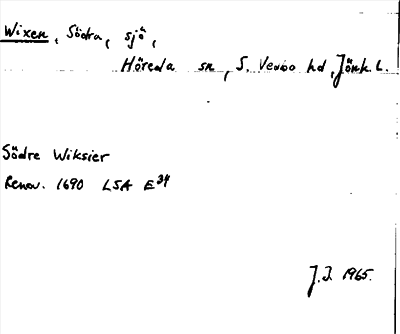 Wixen, Södra, sjö,
Höreda sn, S. Vedbo hd, Jönk. L.
Södre Wiksier
Renov. 1690 LSA E34
J.I. 1965.